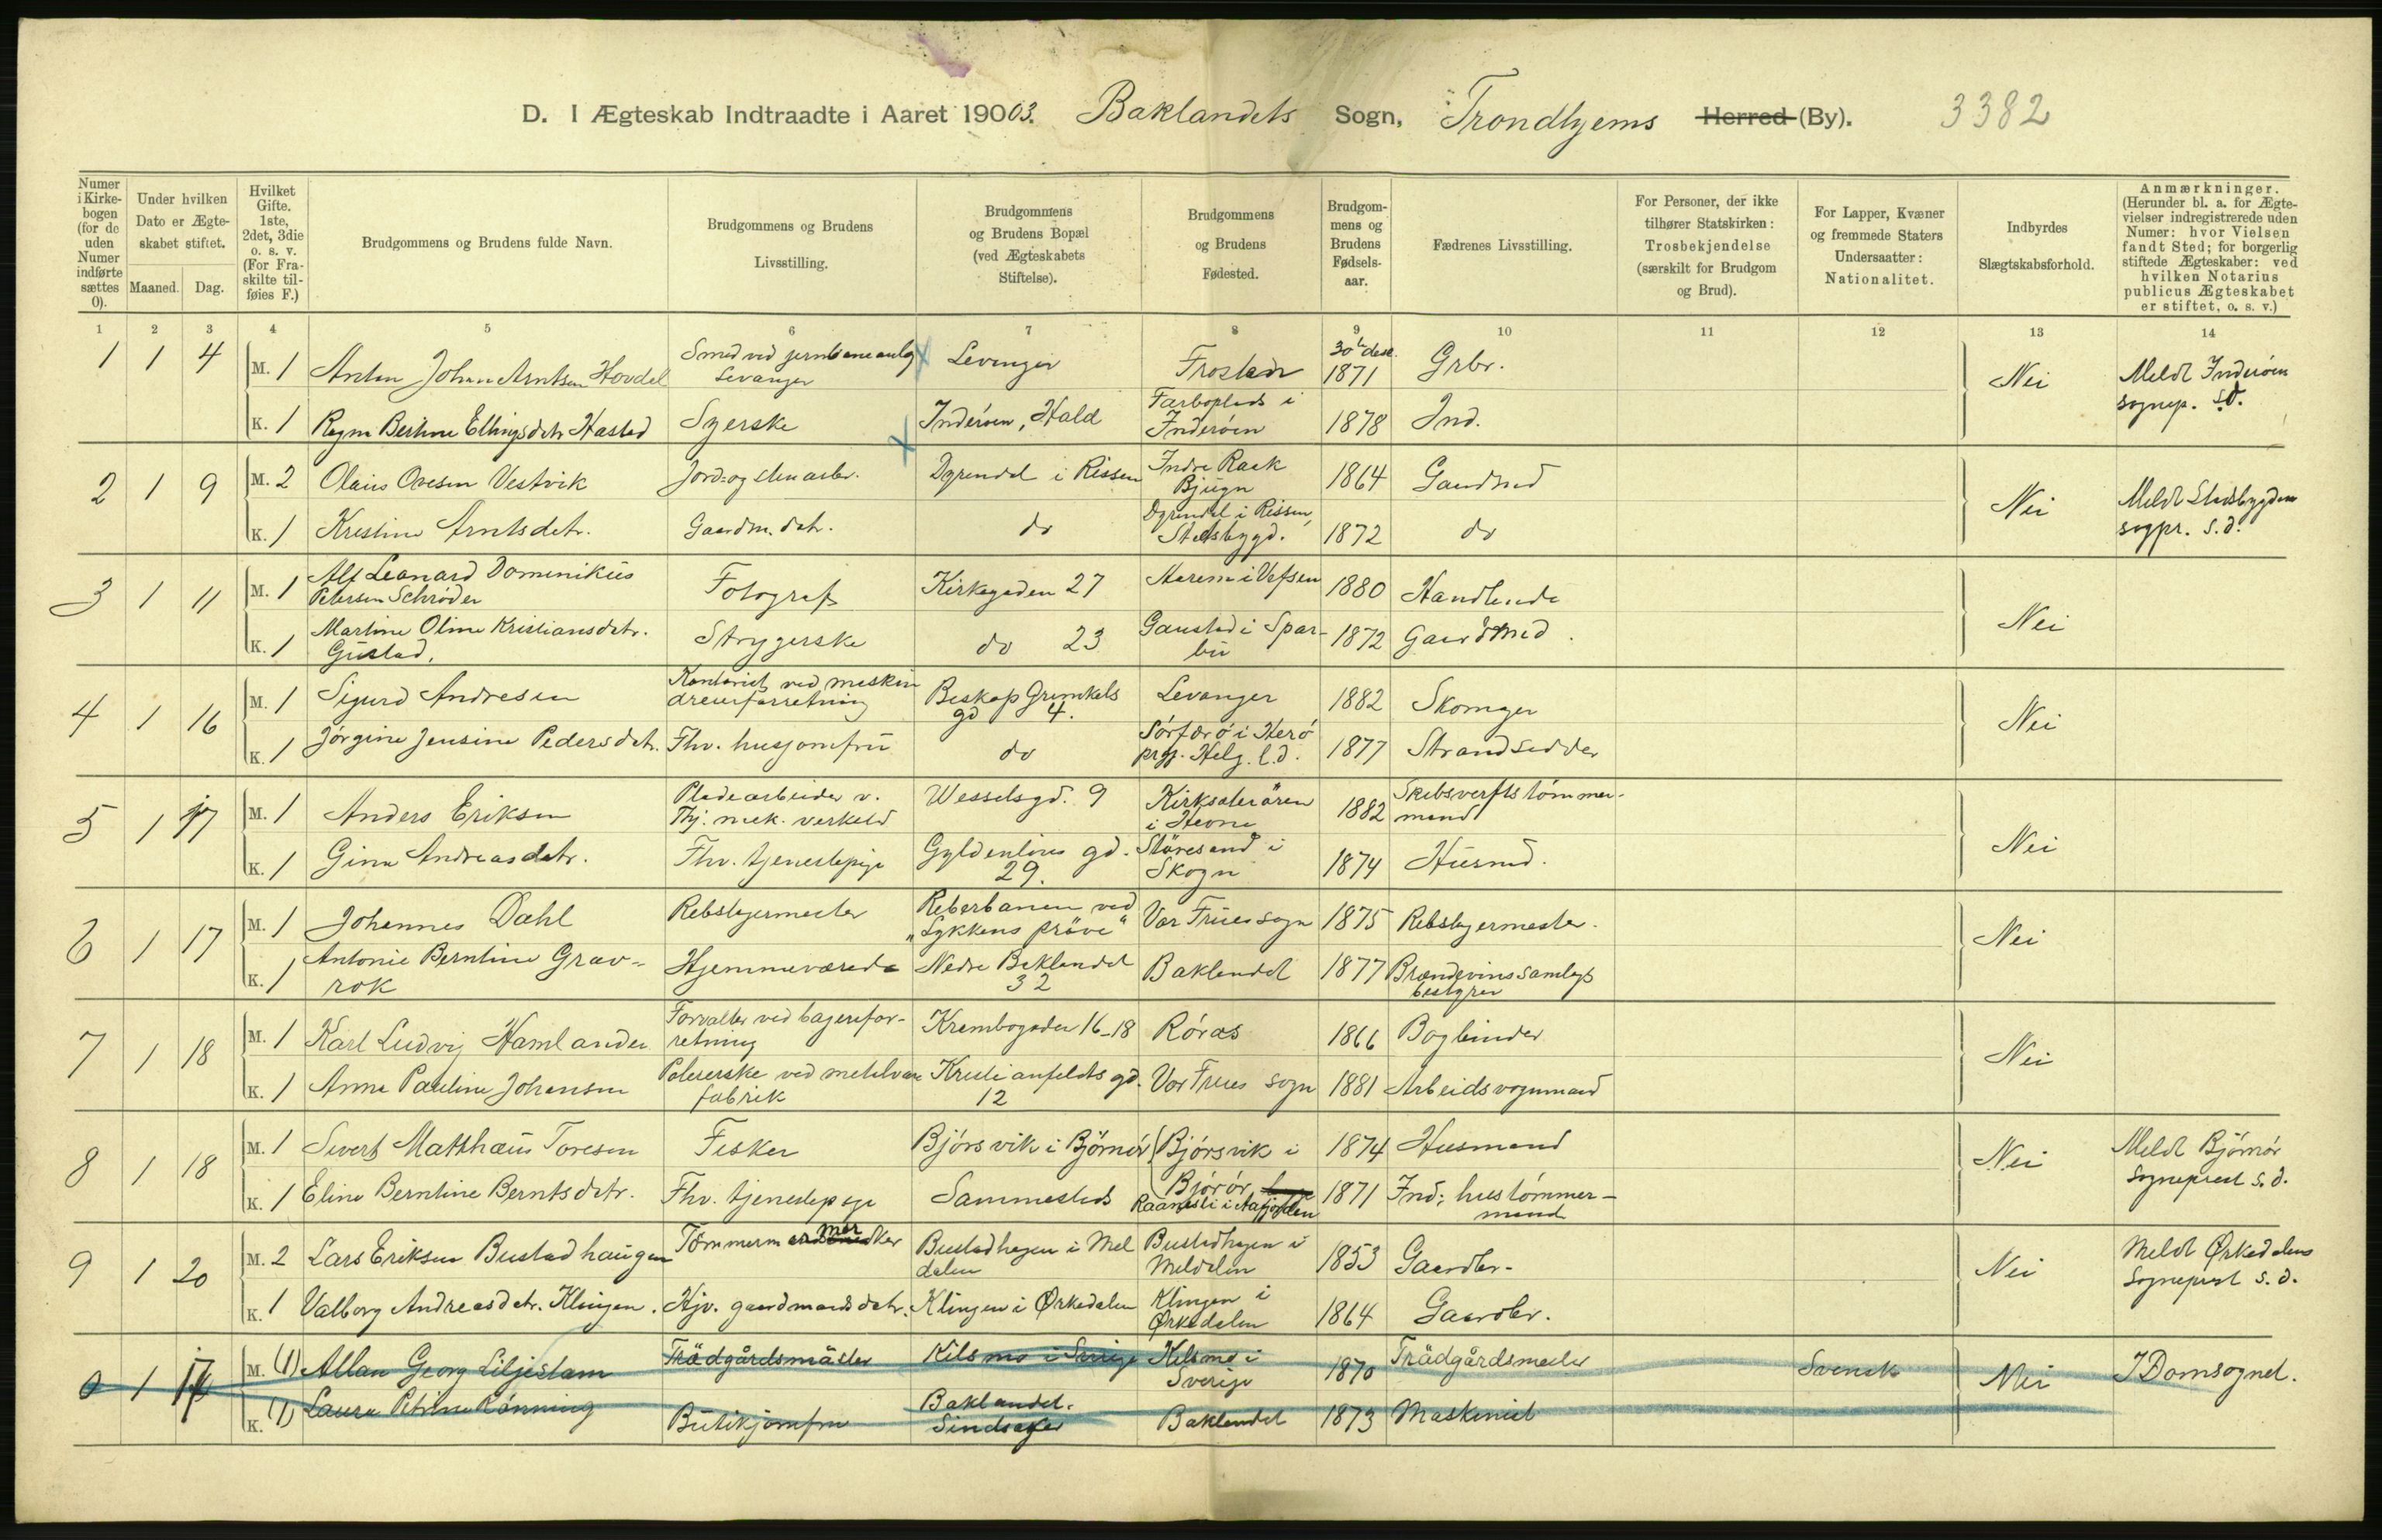 D. I Ægteskab Indtraadte i Aaret 1903. Baklandets Sogn, Trondhjems Herred (By). 3382
Numer i Kirkebogen (for de uden Numer indførte sættes 0).
Under hvilken Dato er Ægteskabet stiftet.
Maaned. Dag.
Hvilket Gifte. 1ste, 2det, 3die o. s. v. (For Fraskilte tilføies F.)
Brudgommens og Brudens fulde Navn.
Brudgommens og Brudens Livsstilling.
Brudgommens og Brudens Bopæl (ved Ægteskabets Stiftelse).
Brudgommens og Brudens Fødested.
Brudgommens og Brudens Fødselsaar.
Fædrenes Livsstilling.
For Personer, der ikke tilhører Statskirken: Trosbekjendelse (særskilt for Brudgom og Brud).
For Lapper, Kvæner og fremmede Staters Undersaatter: Nationalitet.
Indbyrdes Slægtskabsforhold.
Anmærkninger. (Herunder bl. a. for Ægtevielser indregistrerede uden Numer: hvor Vielsen fandt Sted; for borgerlig stiftede Ægteskaber: ved hvilken Notarius publicus Ægteskabet er stiftet, o. s. v.)
1 2 3 4 5 6 7 8 9 10 11 12 13 14
1 1 4 M. 1 Anton Johan Arntsen Hovdal Smed ved jernbaneanlg Levanger Levanger Frosten 30 desc. 1871 Grbr. Nei Meldt Inderøen sognep. s.d.
K. 1 Berline Ellingsdatr Hasted Syerske Inderøen, Hald Inderøen 1878 Ind.
2 1 9 M. 2 Olaus Ovesen Vestvik Jord- og stenarb. Dyrendal i Rissen Indre Raak Bjugn 1864 Gaardmd Nei Meldt Stadsbygdens sogpr. s.d.
K. 1 Kristine Arntsdatr. Gaardm. datr. do Dyrendal i Rissen, Stadsbygd. 1872 do
3 1 11 M. 1 Alf Leonard Dominikus Petersen Schrøder Fotograf Kirkegaden 27 i Vefsen 1880 Handlende Nei
K. 1 Martine Oline Kristiansdatr. Gustad. Strygerske do 23 Gaustad i Sparbu 1872 Gaardmd.
4 1 16 M. 1 Sigurd Andresen Kontorist ved maskin Biskop Grimkels gd 4. Levanger 1882 Skomager Nei
K. 1 Jørgine Jensine Pedersdatr. Fhv. husjomfru do Sørfærø i Herø prgj. Helg. l.d. 1877 Strandsidder
5 1 17 M. 1 Anders Eriksen Pladearbeider v. Thj. mek. verksted Wesselsgd. 9 Kirksæterøren i Hevne 1882 Skibsverftstømmermand Nei
K. 1 Gina Andreasdatr. Fhv. tjenestepige Gyldenløves gd. 29. Støresand i Skogn 1874 Husmd.
6 1 17 M. 1 Johannes Dahl Rebslagermester Reberbanen ved "Lykkens prøve" Vor Frues sogn 1875 Rebslagermester. Nei
K. 1 Antonie Berntine Gravrok Hjemmeværende Nedre Baklandet 32 Baklandet 1877 Brændevinssamlags bestyrer
7 1 18 M. 1 Karl Ludvig Hamlander Forvalter ved bagerforretning Krambogaden 16-18 Røraas 1866 Bogbinder Nei
K. 1 Anna Pauline Johansen Polererske ved metalvarefabrik Kristianfeldts gd. 12 Vor Frues sogn 1881 Arbeidsvognmand
8 1 18 M. 1 Sivert Matthæus Toresen Fisker Bjørsvik i Bjørnør Bjørsvik i Bjørør 1874 Husmand Nei Meldt Bjørnør Sogneprest s.d.
K. 1 Eline Berntine Berntsdatr. Fhv. tjenestepige Sammesteds i Aafjorden 1871 Ind: hustømmermand
9 1 20 M. 2 Lars Eriksen Bustadhaugen Bustadhagen i Meldalen Bustadhagen i Meldalen 1853 Gaardbr. Nei Meldt Ørkedalens Sogneprest s.d.
K. 1 Valborg Andreasdatr. Klingen. Hjv. gaardmandsdatr. Klingen i Ørkedalen Klingen i Ørkedalen 1864 Gaardbr.
0 1 17 M. (1) Allan Georg Liljestam Trädgårdsmäster Kilsmo i Sverige Kilsmo i Sverige 1870 Trädgårdsmester Svensk Nei I Domsognet.
K. (1) Laura Petrine Rønning Butikjomfru Baklandet. Sindsaker Baklandet 1873 Maskinist